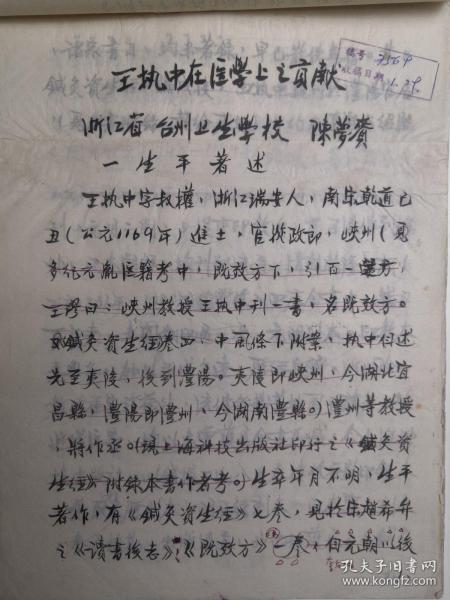 编号 7564
收稿日期 1.29.
王执中在医学上之貢献
浙江省台州卫生学校 陳夢賚
一 生平著述
王执中字叔權，浙江瑞安人，南宋乾道己
丑（公元1169年）進士，官將政郎，峽州（見
多紀元胤医籍考中，既效方下，引百一選方，
王璆曰：峽州教授王执中刊一書，名既效方。
鍼灸资生经卷四，中風條下附案，执中自述
先至夷陵，後到澧陽。夷陵即峽州，今湖北宜
昌縣，澧陽即澧州，今湖南澧縣。）澧州等教授
，將作丞（據上海科技出版社印行之《鍼灸资
生经》附錄本書作者考。）生卒年月不明，生平
著作，有《鍼灸资生经》七卷，見於宋趙希弁
之《讀書後志》；《既效方》一卷，自元朝以後
孔夫子旧书网
book.kongfz.com